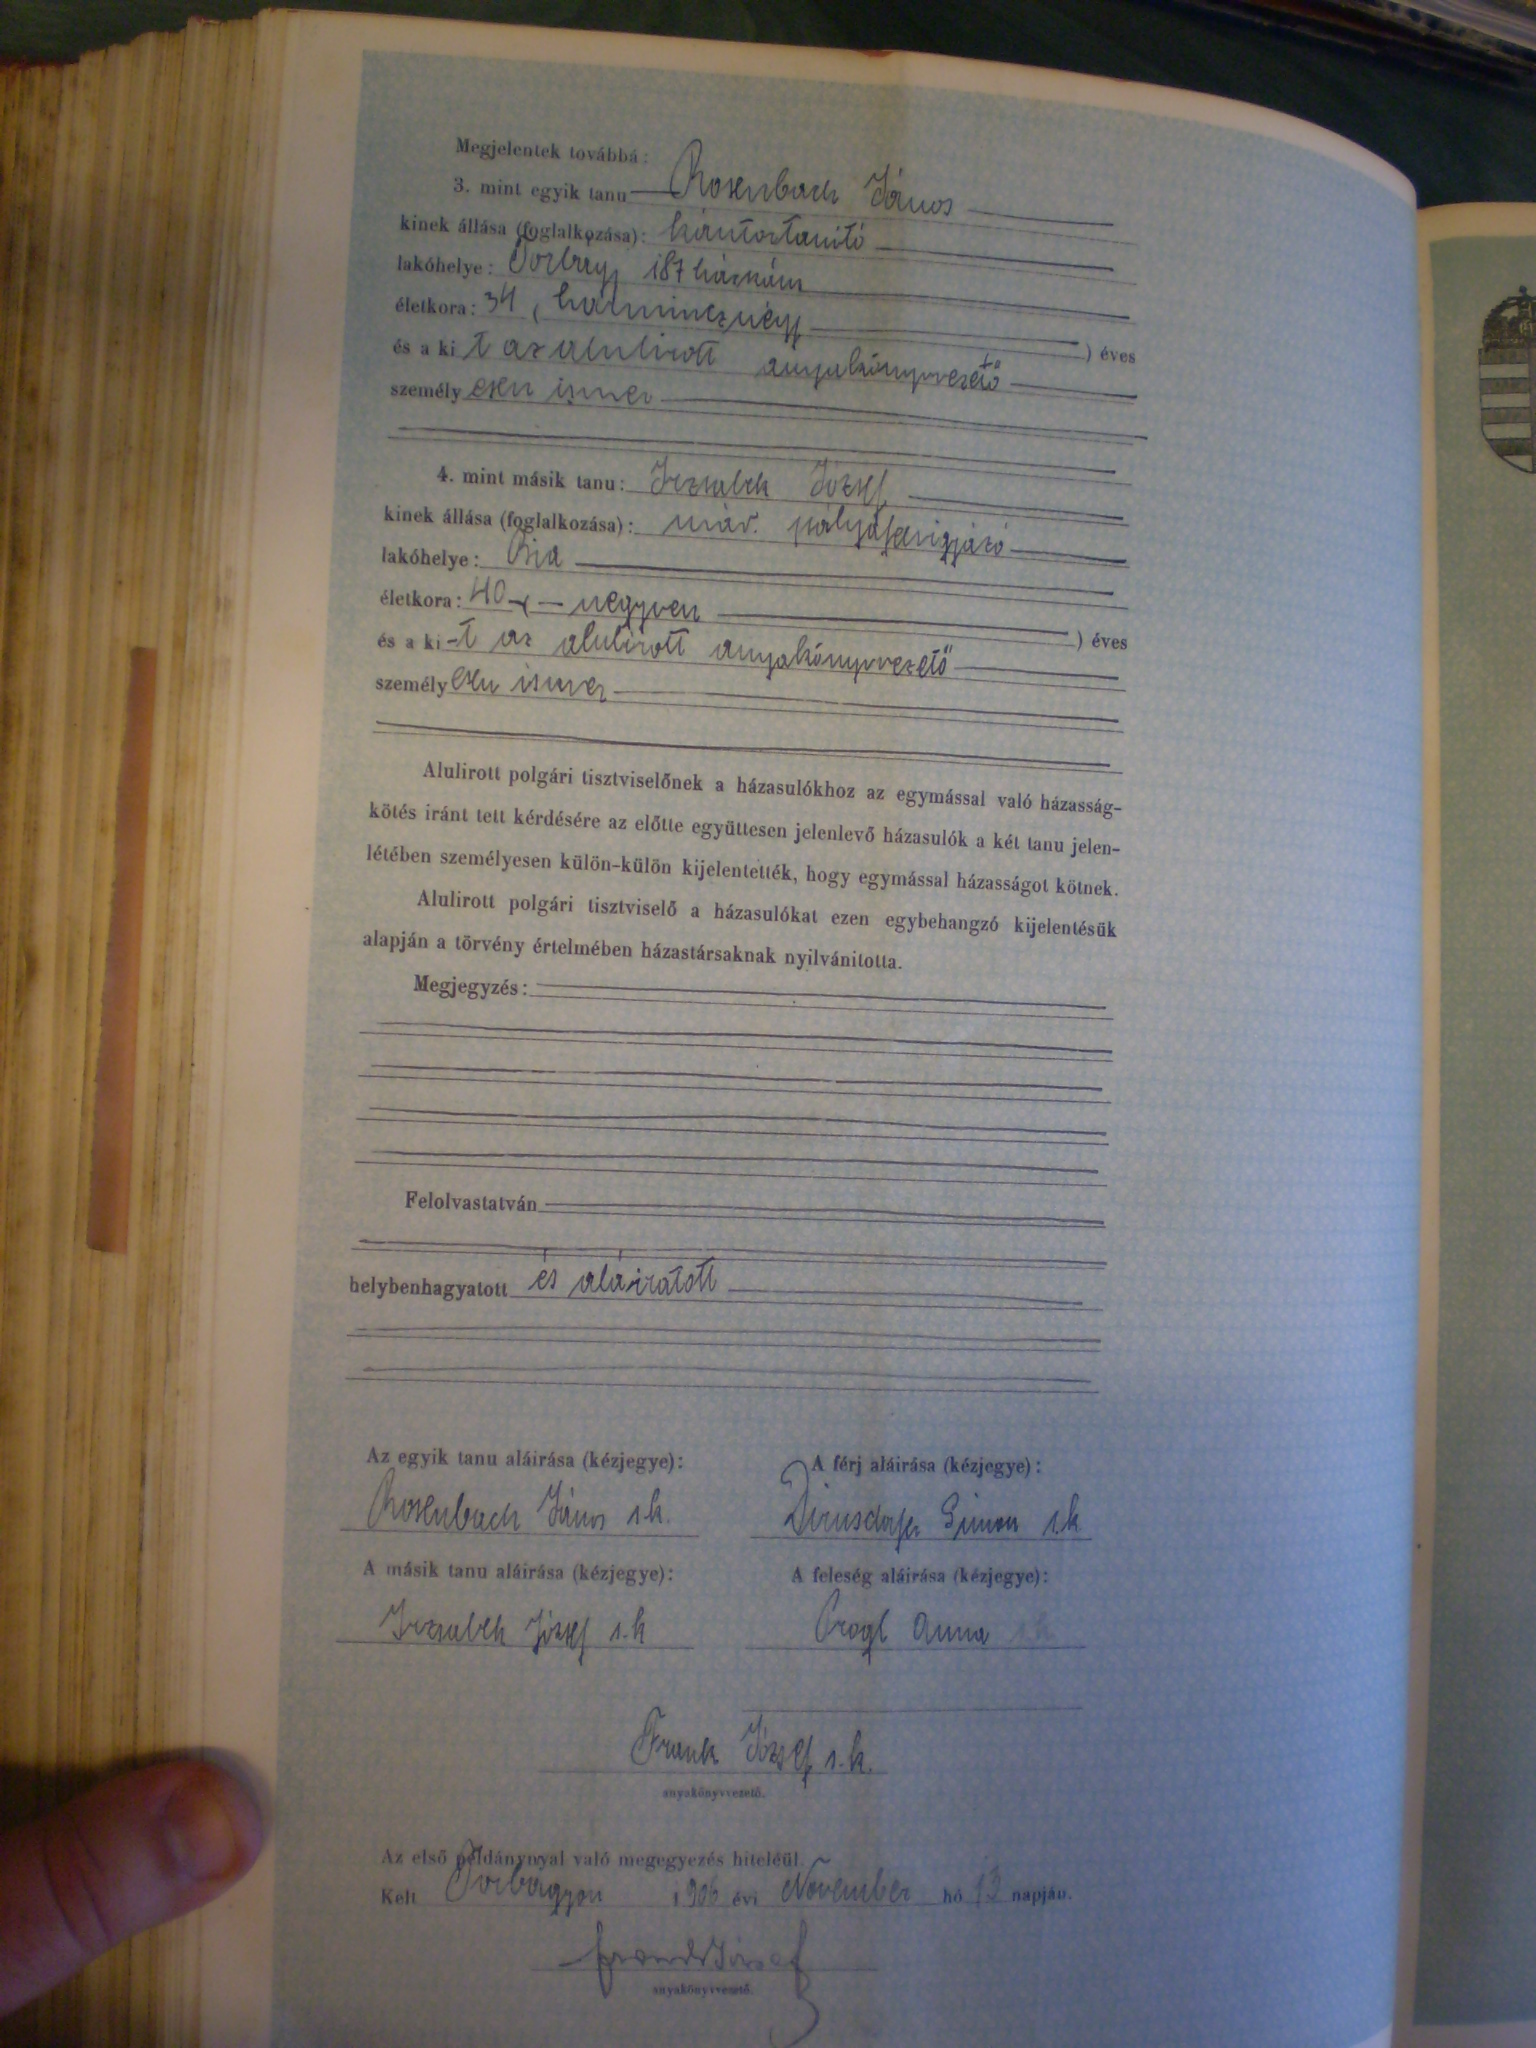 Megjelentek továbbá:
3. mint egyik tanu Rosenbach János
kinek állása (foglalkozása): kántortanító
lakóhelye: Torbágy 187 házszám
életkora: 34 (harmincznégy ) éves
és a ki t az alulirott anyakönyvvezető
személy esen ismer
4. mint másik tanu: Jezsabek József
kinek állása (foglalkozása): máv. pályafelvigyázó
lakóhelye: Bia
életkora: 40 ( negyven ) éves
és a ki -t az alulirott anyakönyvvezető
személy esen ismer
Alulirott polgári tisztviselőnek a házasulókhoz az egymással való házasság-
kötés iránt tett kérdésére az előtte együttesen jelenlevő házasulók a két tanu jelen-
létében személyesen külön-külön kijelentették, hogy egymással házasságot kötnek.
Alulirott polgári tisztviselő a házasulókat ezen egybehangzó kijelentésük
alapján a törvény értelmében házastársaknak nyilvánitotta.
Megjegyzés:
Felolvastatván
helybenhagyatott és aláiratott
Az egyik tanu aláirása (kézjegye):
A férj aláirása (kézjegye):
Rosenbach János s.k.
Simon s.k
A másik tanu aláirása (kézjegye):
A feleség aláirása (kézjegye):
Jezsabek József s.k
Progl Anna s.k
Frank József s.k.
anyakönyvvezető.
Az első példánynyal való megegyezés hiteléül.
Kelt Torbágyon 1906 évi November hó 13 napján.
Frank József
anyakönyvvezető.